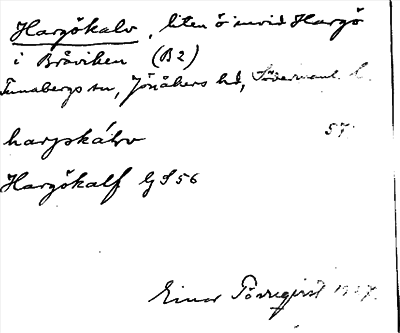 Hargökalv, liten ö invid Hargö
i Bråviken (B2)
Tunabergs sn, Jönåkers hd, Södermanl. l.
57
harpskálv
Hargökalf GS56
Einar Törnqvist 1927.